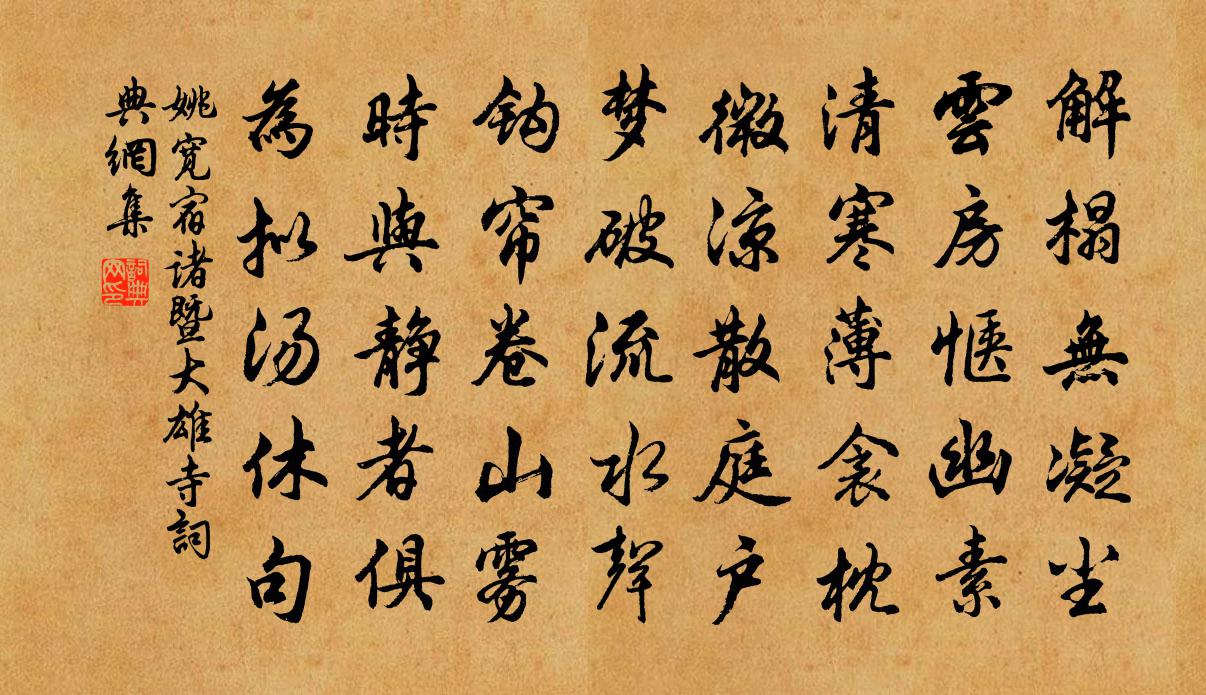 解榻無凝尘
雲房惬幽素
清寒薄衾枕
微凉散庭户
梦破流水聲
鈎帘卷山雾
時與静者俱
為拟汤休句
姚寬宿诸暨大雄寺詞
典網集
詞典网印